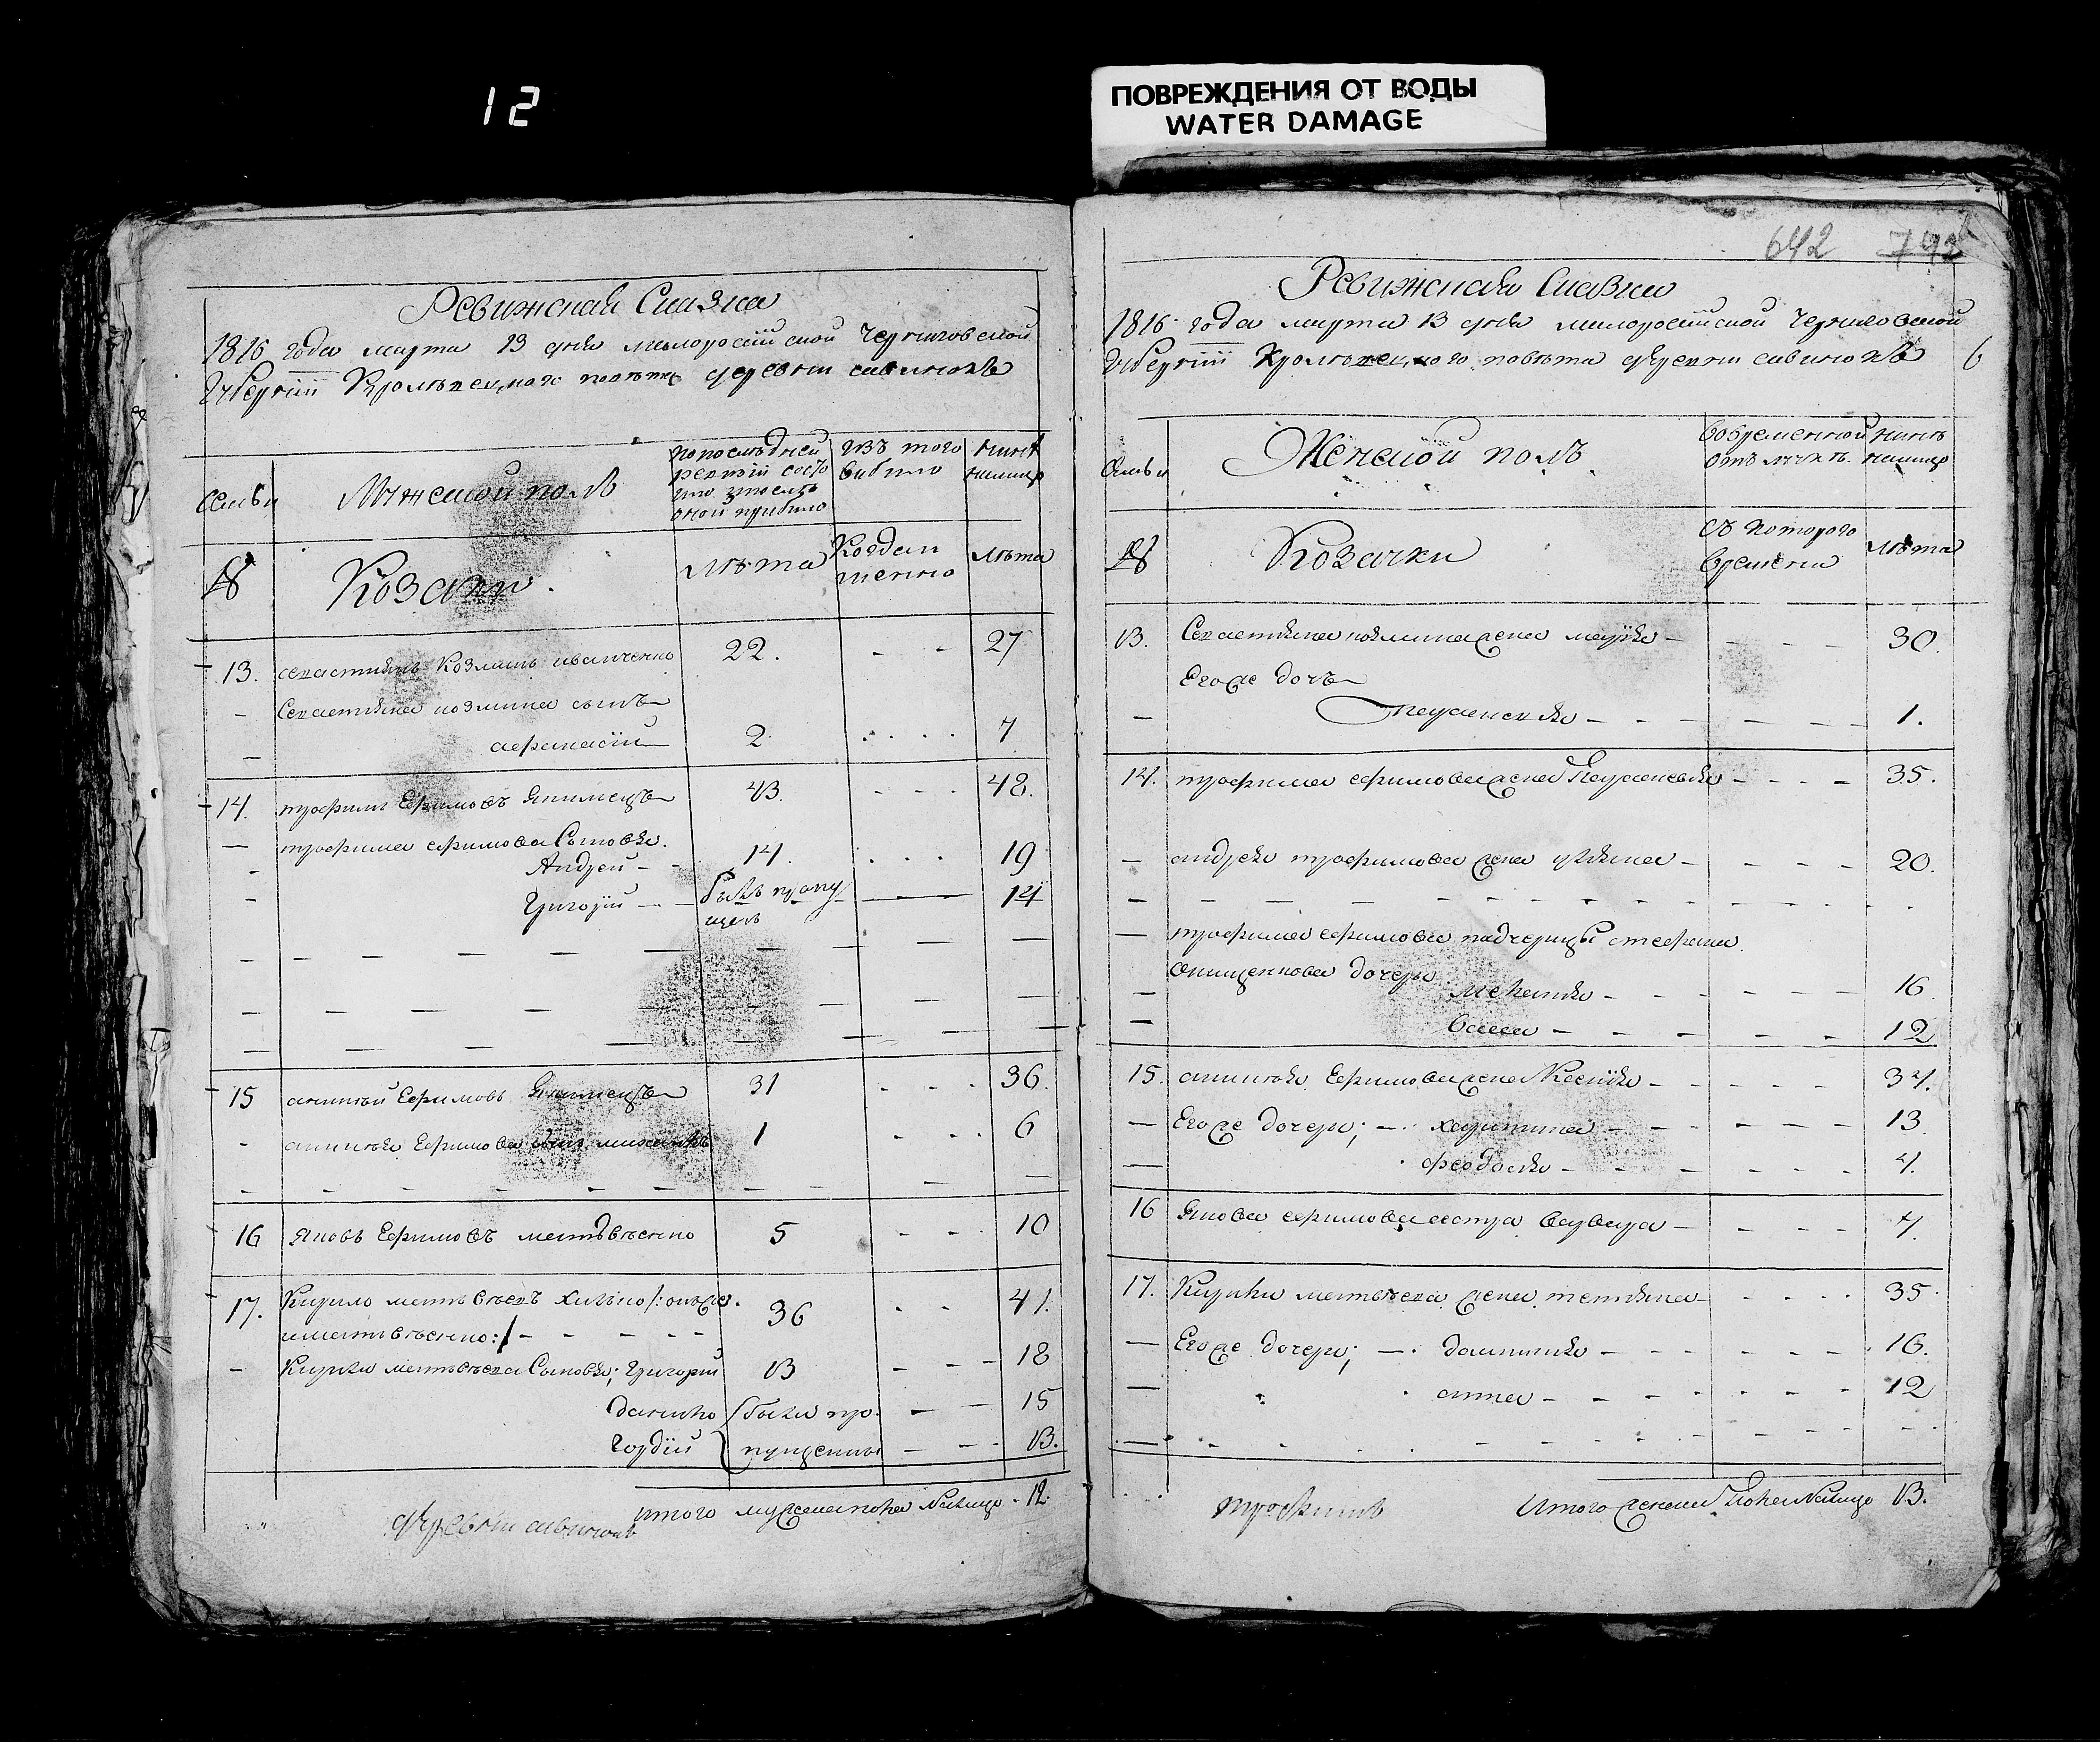 12
ПОВРЕЖДЕНИЯ ОТ ВОДЫ
WATER DAMAGE
Ревижская Сказка
1816 года марта 13 дня малоросiйской Черниговской
Губернiи Кролевецкого повета деревни савинокъ
Семьи
Мужеской полъ
по последней
ревизiи состо
яло и после
оной прибыло
Изъ того
выбыло
Ныне
налицо
№
Козаки
Лѣта
Когда и
менно
Лѣта
13. севастиянъ Козминъ иваненко 22. - - 27
Севастияна козмина сынъ
афанасiй 2 . . . . 7
14. трофимъ Ефимовъ Якимецъ 43. - - - 48.
трофима ефимова Сыновья.
Андрей - 14. . . . 19
Григорiй - - былъ пропу 14
щенъ
15 аникѣй Ефимовъ Якимецъ 31 - - - 36.
аникѣя Ефимова сынъ 1 - - - 6
16 Яковъ Ефимовъ матвѣенко 5 - - - 10
17. Кирило матвѣевъ
иматвѣенко:/ - - - - - 36 - - 41.
Кирила матвѣева Сыновья; Григорiй 13 - - - 18
данило были про. - - 15
Гордiй пущенны - - - 13.
итого мужеска пола налицо - 12.
деревни савинокъ
642 742
Ревижская Сказка
1816 года марта 13 дня малоросiйской Черниговской
Губернiи Кролевецкого повета деревни савинокъ
6
Семьи
Женской полъ
Во временной
отлучкѣ.
Ныне
налицо
№
Козачки
Съ которого
времени
Лѣта
13. Севастияна козмина жена марiя - - - - 30.
Его же дочъ
Параскевия - - - - - - 1.
14. трофима ефимова жена Параскевия - - - - 35.
андрея трофимова жена улияна - - - - - 20.
трофима ефимова падчерицы стефана
онищенкова дочери
меланiя - - - - - - 16.
васса - - - - - - 12
15. аникѣя Ефимова жена Ксенiя - - - - - 34.
Его же дочери; - харитина - - - - - - 13.
феодосия - - - - - - 4.
16 Якова ефимова сестра варвара - - - - 7.
17. Кирила матвѣева жена татияна - - - - 35.
Его же дочери; - домникия - - - - - - 16.
анна - - - - - - - 12
трофимъ
Итого женска пола налицо 13.